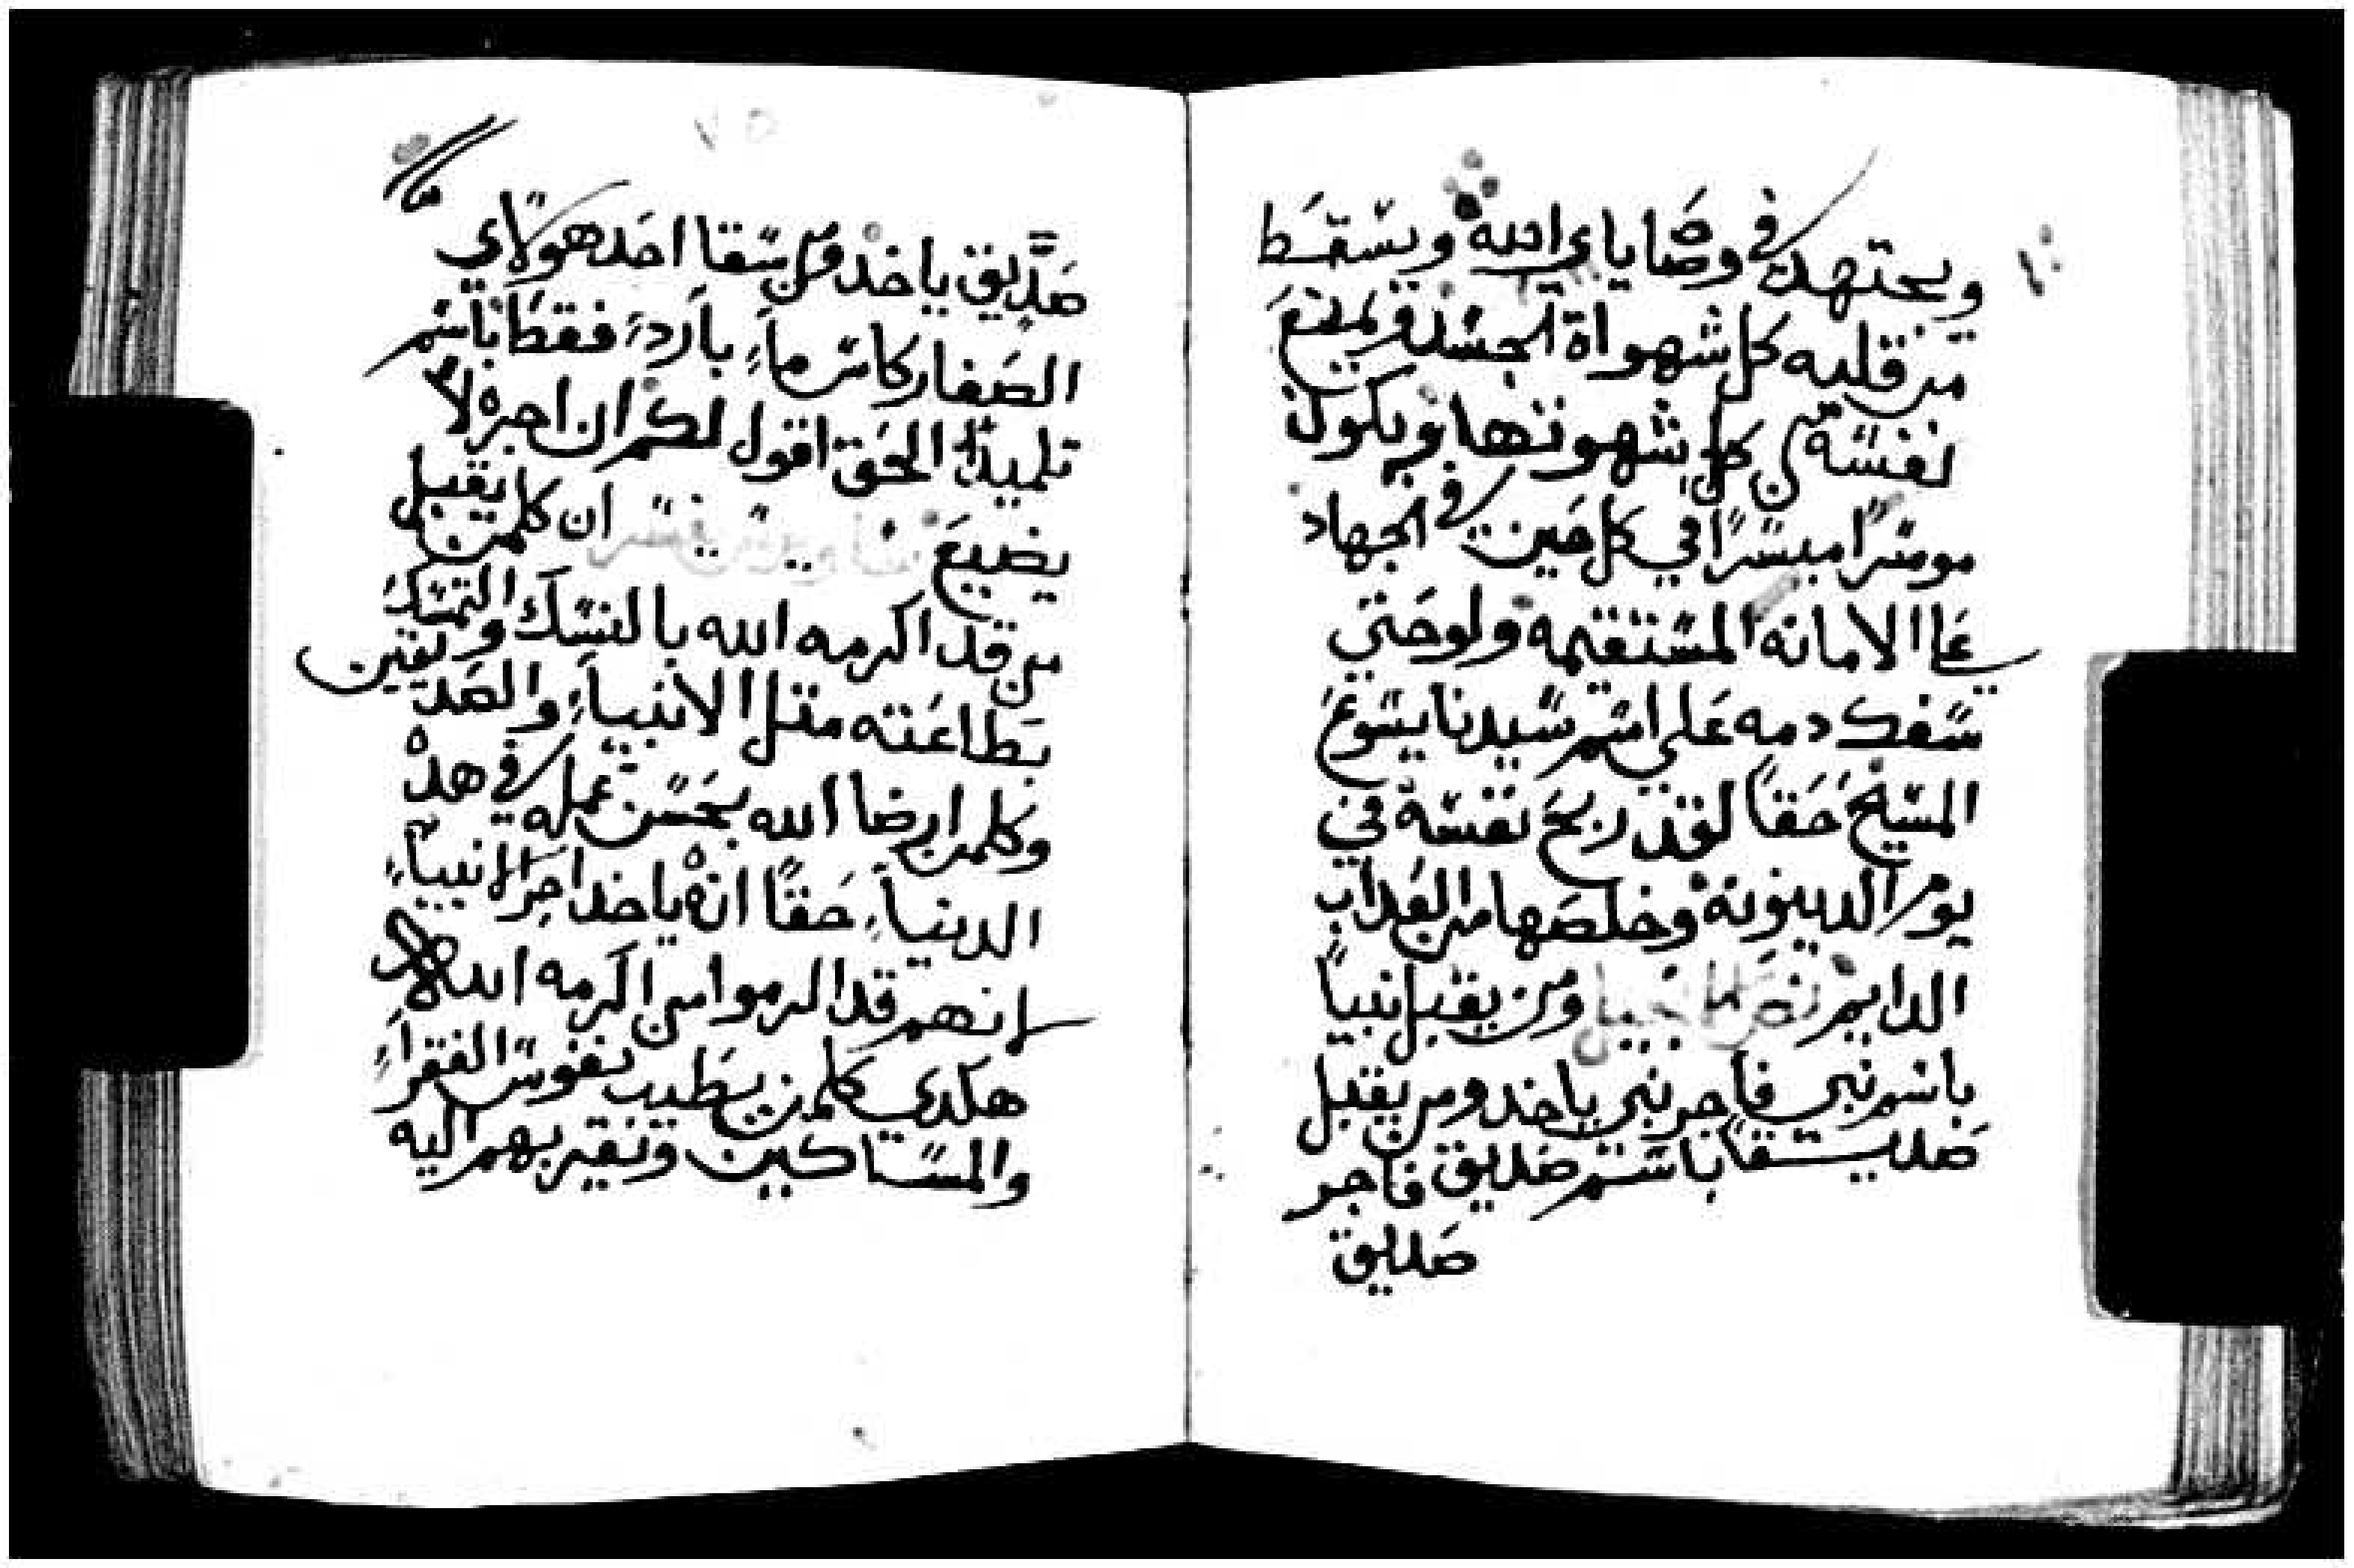 ويجتهد في وصاياء الله ويسقط
من قلبه كل شهواة الجسد ويمنع
نفسه من كل شهوتها ويكون
مومنرا مبسرا في كل حين في الجهاد
علي الامانه المستقيمه ولو حتي
سفك دمه علي اسم سيدنا يسوع
المسيح حقا لقد ربح نفسه في
يوم الدينونه وخلصها من العداب
الدايم نص الانجيل ومن يقبل نبيا
باسم نبي فاجر نبي ياخد ومن يقبل
صديقا باسم صديق فاجر
صديق
٧٥
صديق ياخد ومن سقا احد هولاي
الصغار كاس ماء بارد فقط باسم
تلميد الحق اقول لكم ان اجره لا
يضيع تفسير ان كلمن يقبل
من قد اكرمه الله بالنسك والتمسك
بطاعته متل الانبياء والصديقين
وكلمن ارضا الله بحسن عمله في هده
الدنياء حقا انه ياخد اجر الانبياء
لانهم قد اكرموا من اكرمه الله
هكدي كلمن يطيب نفوس الفقراء
والمساكين وتقربهم اليه